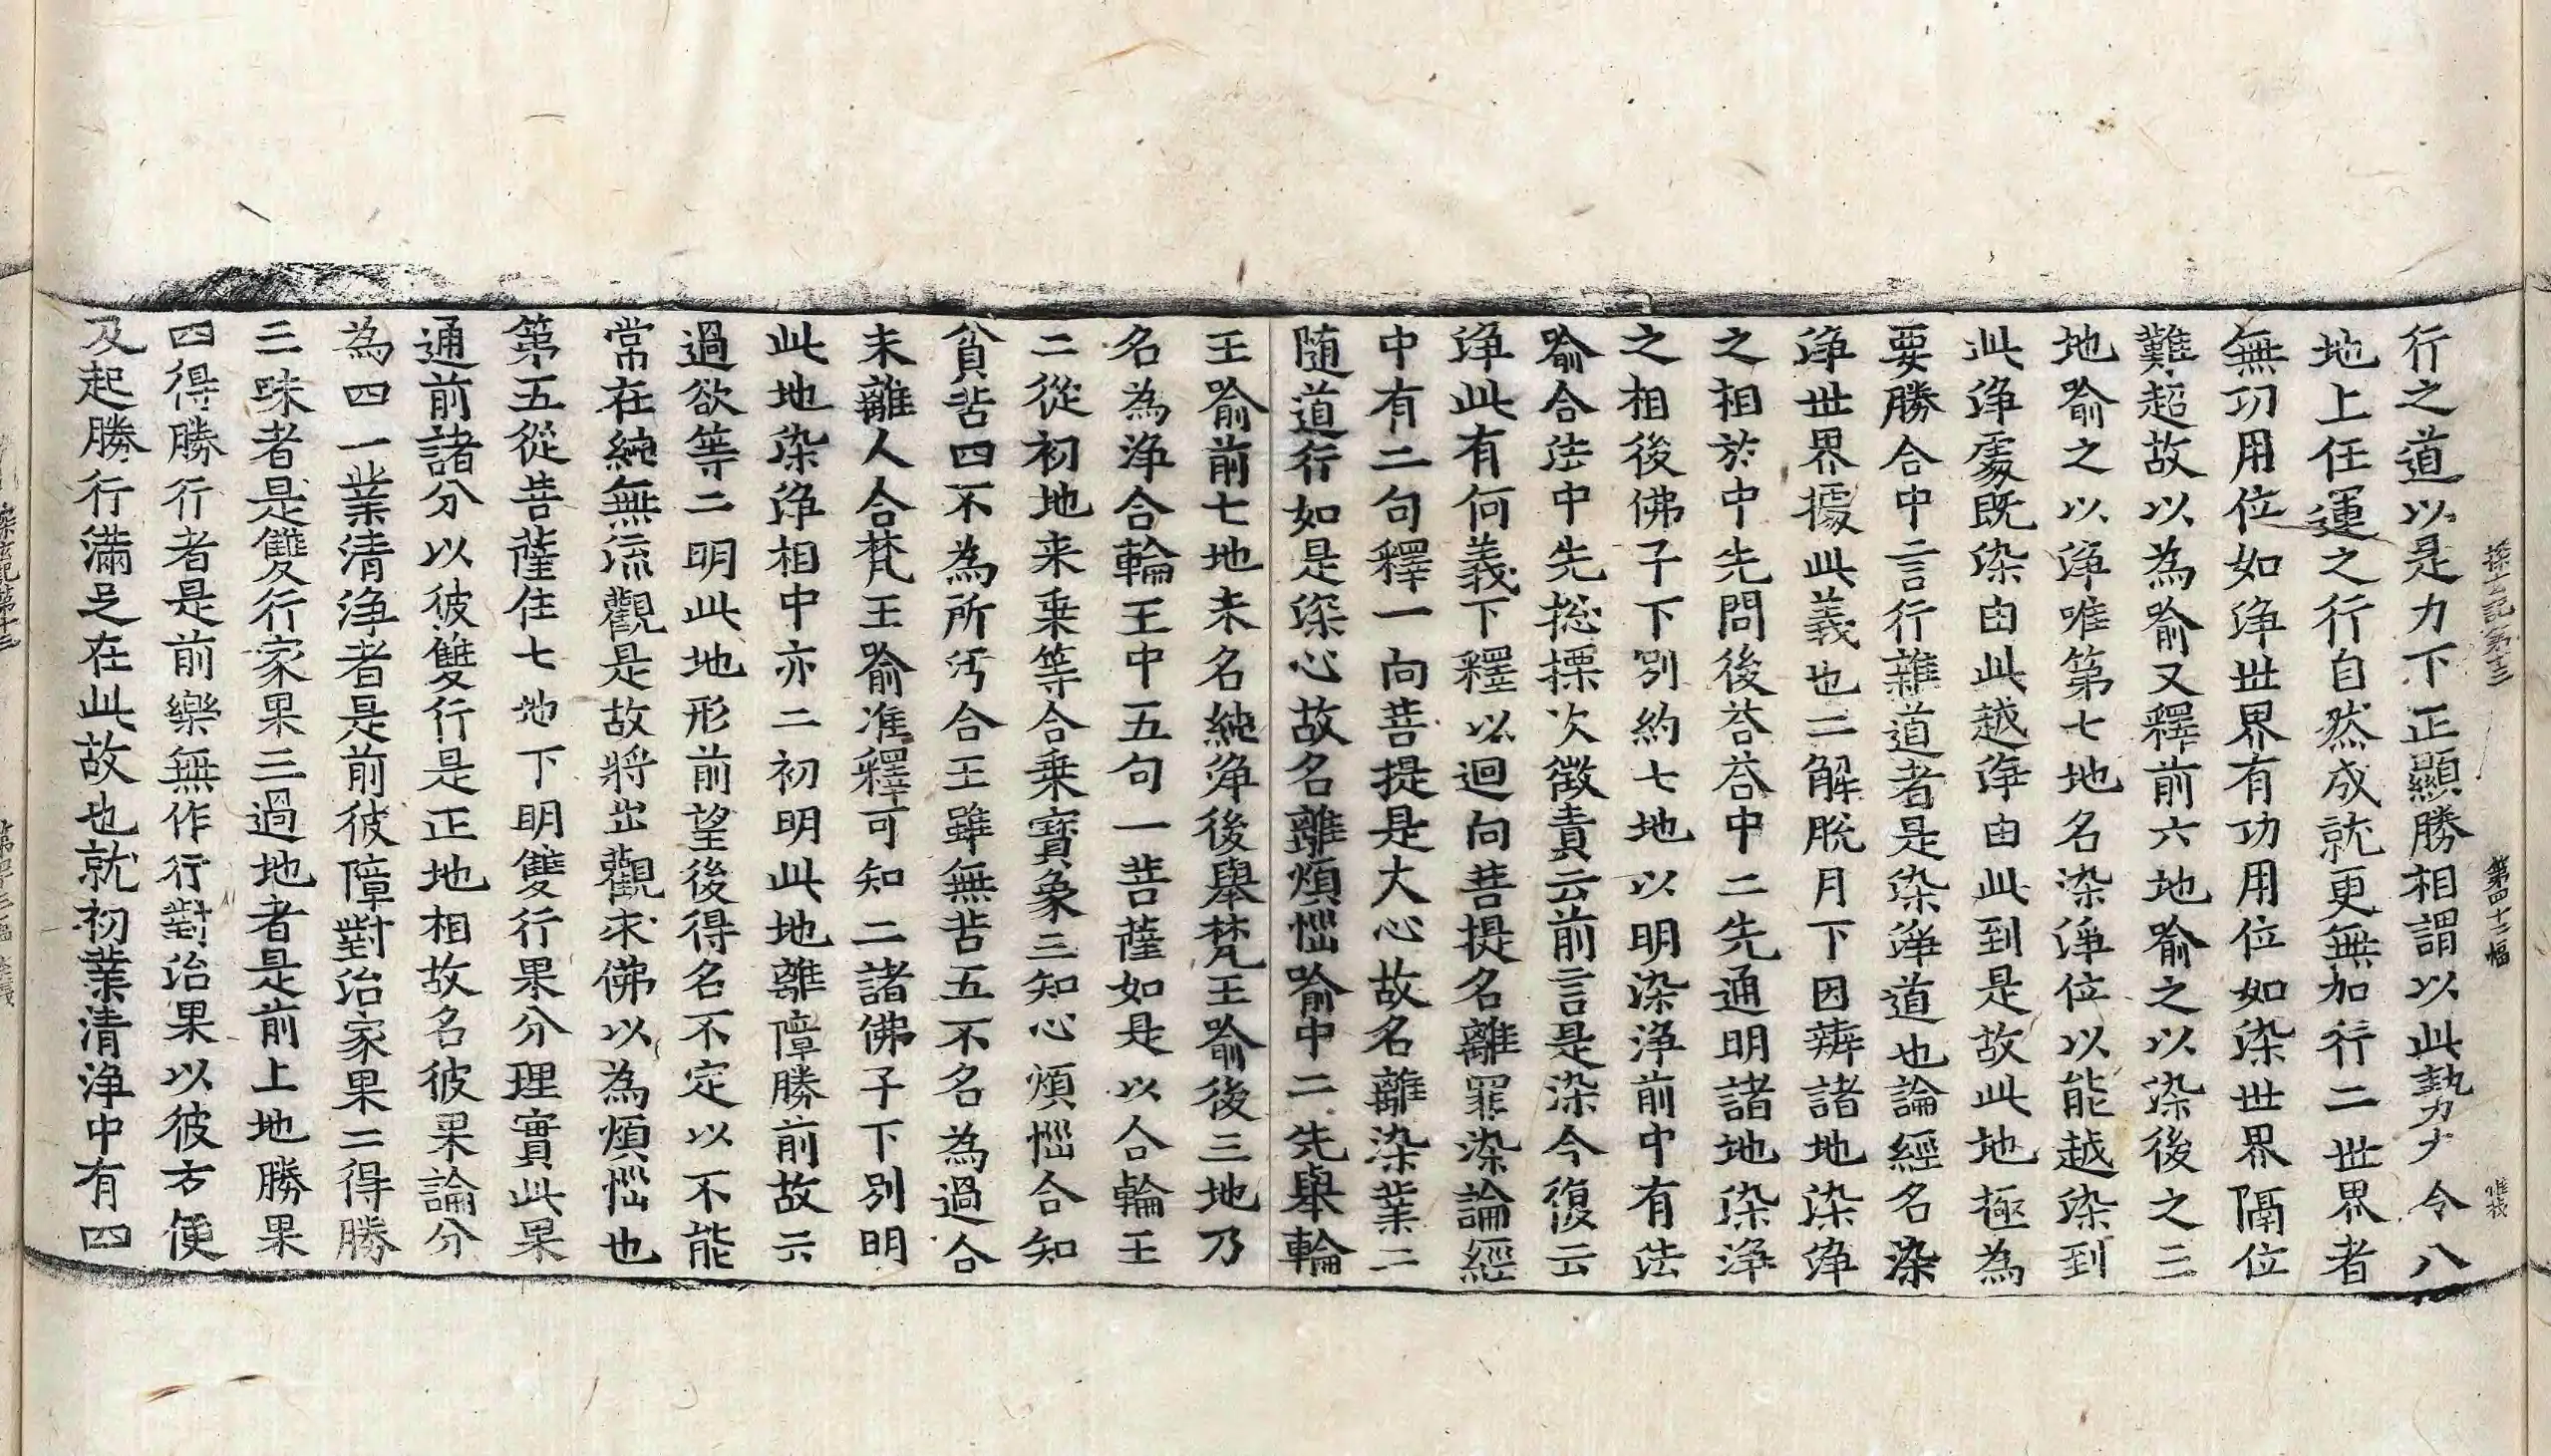 探玄記第十三 第四十二幅
行之道以是力下正顯勝相謂以此勢力令八
地上任運之行自然成就更無加行二世界者
無功用位如淨世界有功用位如染世界隔位
難超故以為喻又釋前六地喻之以染後之三
地喻之以淨唯第七地名染淨位以能越染到
此淨處既染由此越淨由此到是故此地極為
要勝合中言行雜道者是染淨道也論經名染
淨世界據此義也二解脫月下因辨諸地染淨
之相於中先問後荅荅中二先通明諸地染淨
之相後佛子下別約七地以明染淨前中有法
喻合法中先捴摽次徵責云前言是染今復云
淨此有何義下釋以迴向菩提名離罪染論經
中有二句釋一向菩提是大心故名離染業二
随道行如是深心故名離煩惱喻中二先舉輪
王喻前七地未名純淨後舉梵王喻後三地乃
名為淨合輪王中五句一菩薩如是以合輪王
二從初地来乗等合乗寶象三知心煩惱合知
貧苦四不為所汚合王雖無苦五不名為過合
未離人合梵王喻准釋可知二諸佛子下別明
此地染淨相中亦二初明此地離障勝前故云
過欲等二明此地形前望後得名不定以不能
常在純無流觀是故將出觀求佛以為煩惱也
第五從菩薩住七地下明雙行果分理實此果
通前諸分以彼雙行是正地相故名彼果論分
為四一業清淨者是前彼障對治家果二得勝
三昧者是雙行家果三過地者是前上地勝果
四得勝行者是前樂無作行對治果以彼方便
及起勝行滿足在此故也就初業清淨中有四